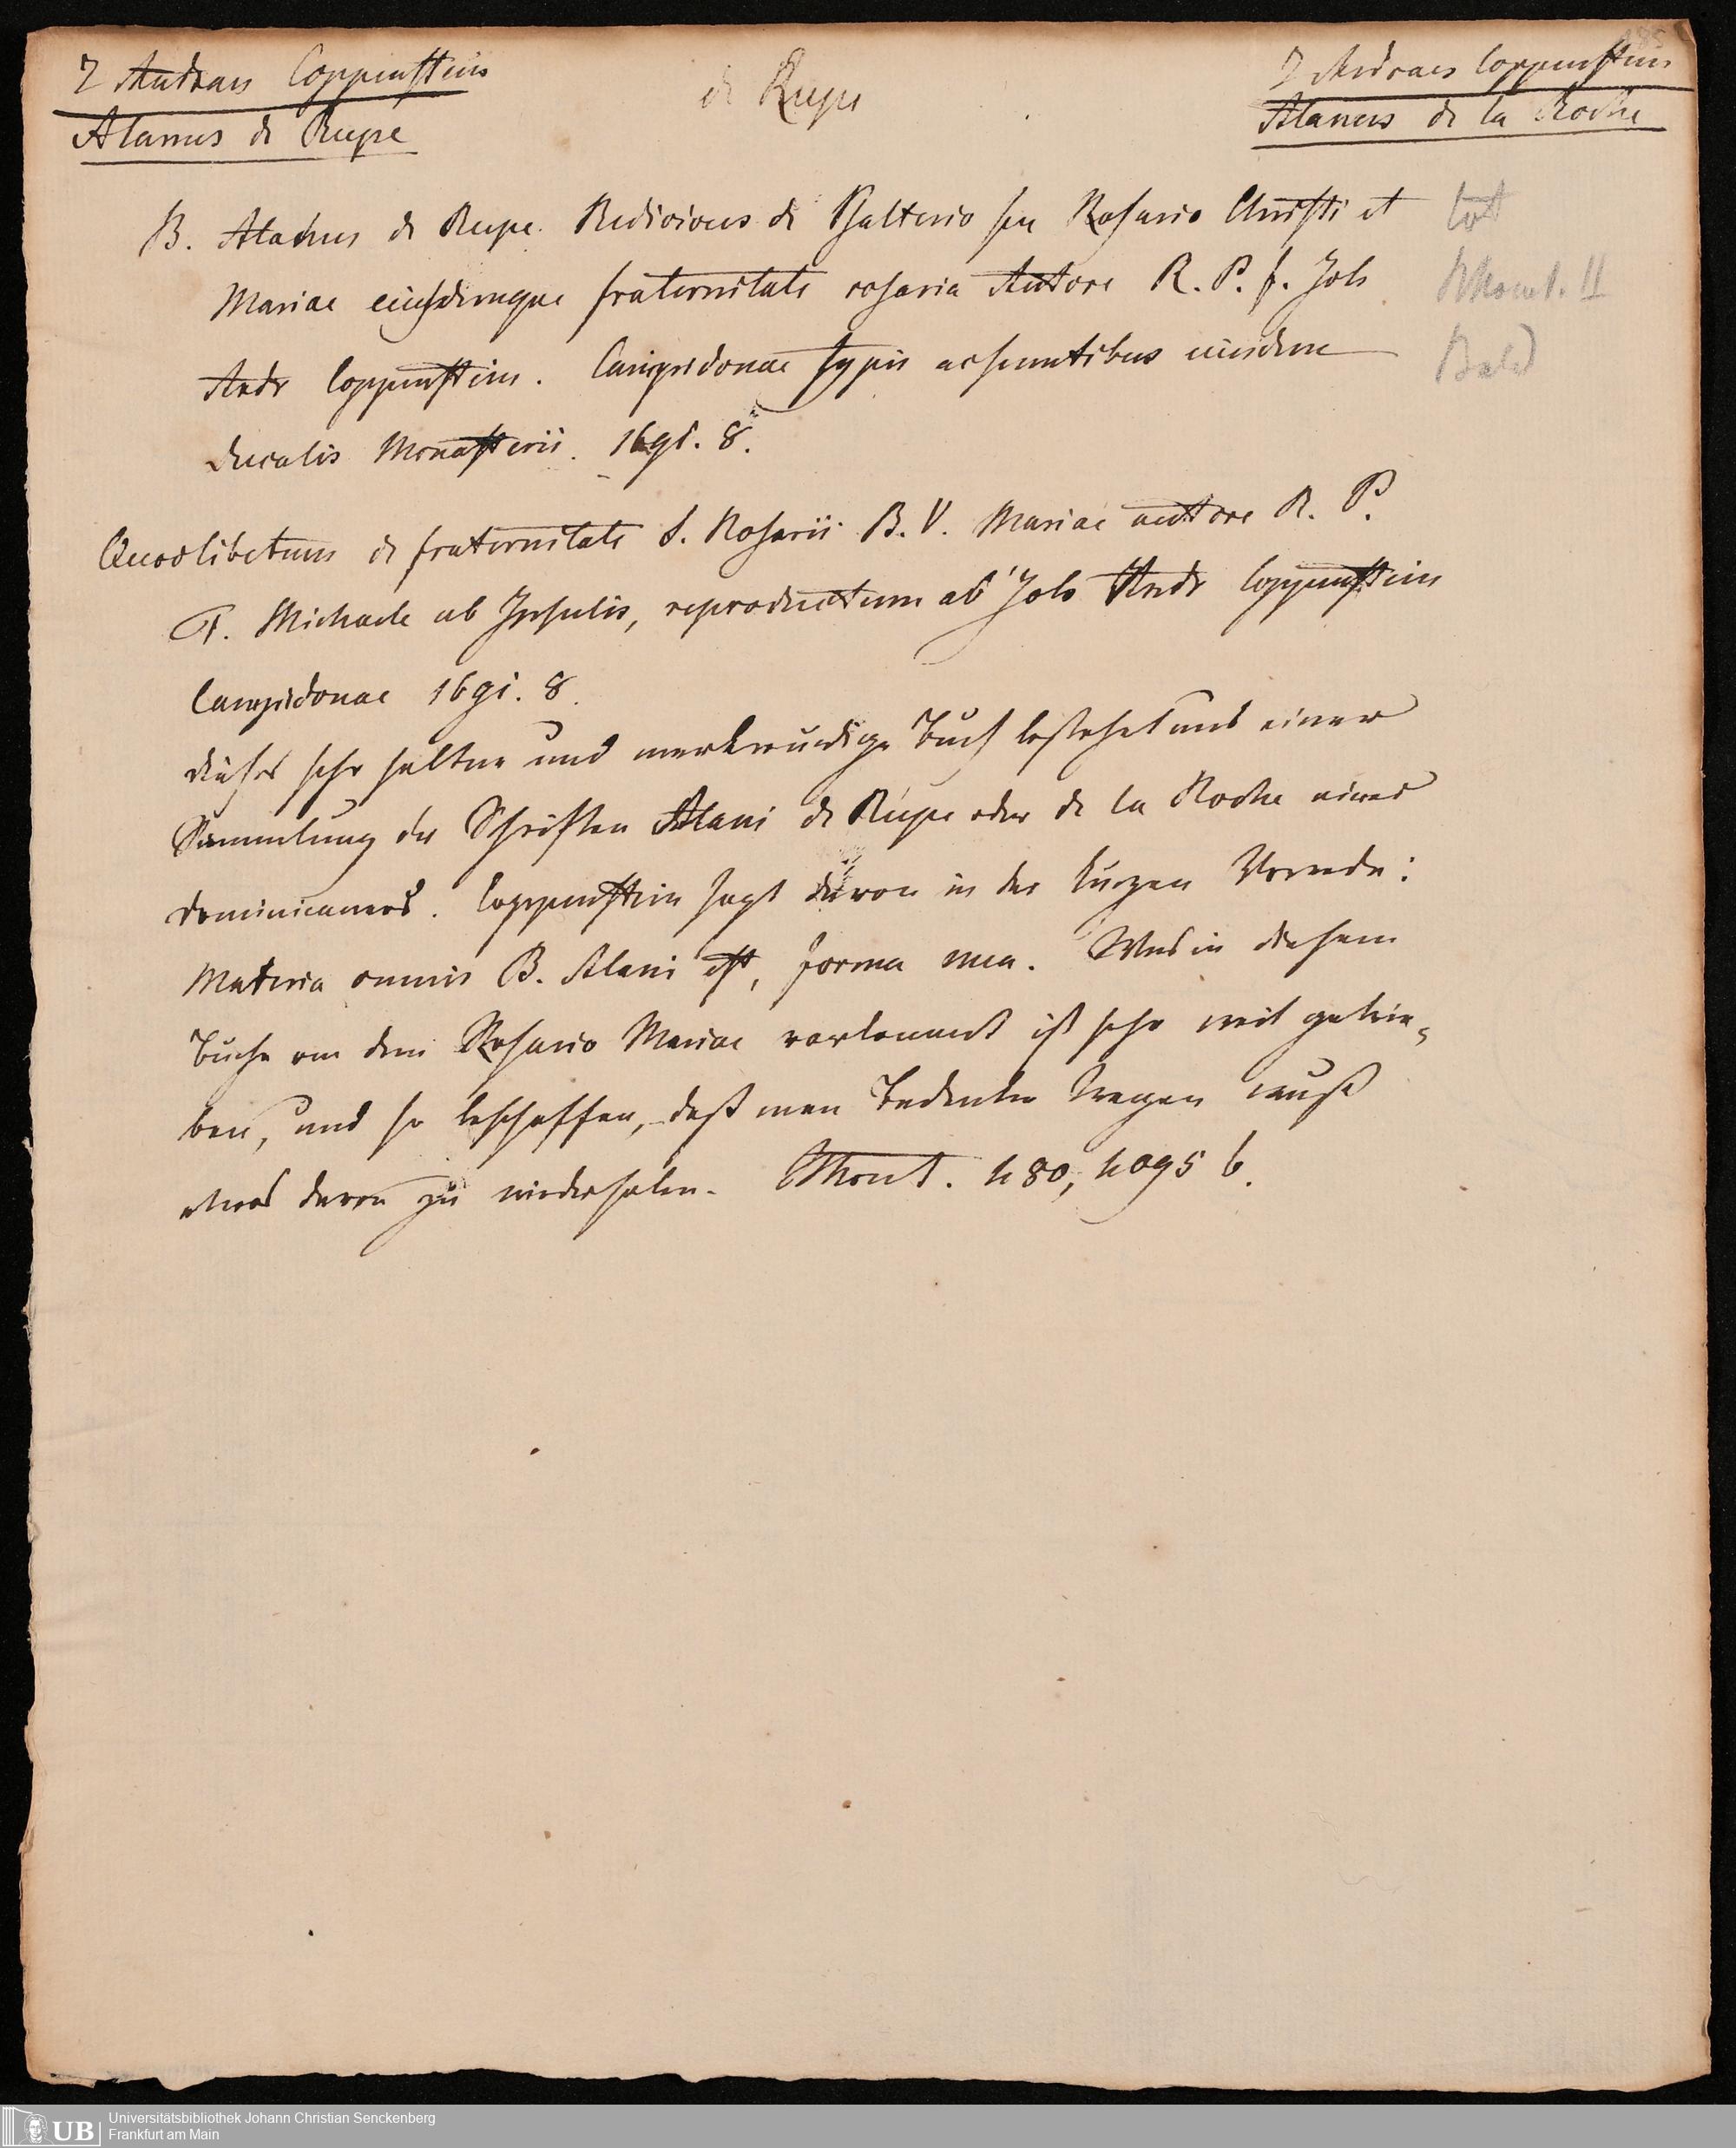 185
J Andraes Coppenstein
de Rupe
J Andraes Coppenstein
Alanus de Rupe
Alanus de la Roche
B. Alanus de Rupe. Redivivus de Psalterio seu Rosario Christi et
tot
Mariae eiusdemque fraternitate rosaria Autore R. P. f. Joh
Mont. II
Andr Coppenstein. Campidonae typis ac sumtibus eiusdem
Bald
ducalis Monasterii. 1691. 8.
Quodlibetum de fraternitate S. Rosarii B. V. Mariae autore R. P.
F. Michaele ab Insulis, reproductum ab Joh Andr Coppenstein
Campidonae 1691. 8.
dieses sehr seltne und merkwürdige Buch bestehet aus einer
Sammlung der Schriften Alani de Rupe oder de la Roche eines
Dominicaners. Coppenstein sagt davon in der kurzen Vorrede:
Materia omnis B. Alani est, forma mea. Was in diesem
Buche von dem Rosario Mariae vorkommt ist sehr weit getrie-
ben, und so beschaffen, daß man Bedenken tragen muß
etwas davon zu wiederholen. Mont. 480, 4095 b.
UB
Universitätsbibliothek Johann Christian Senckenberg
Frankfurt am Main